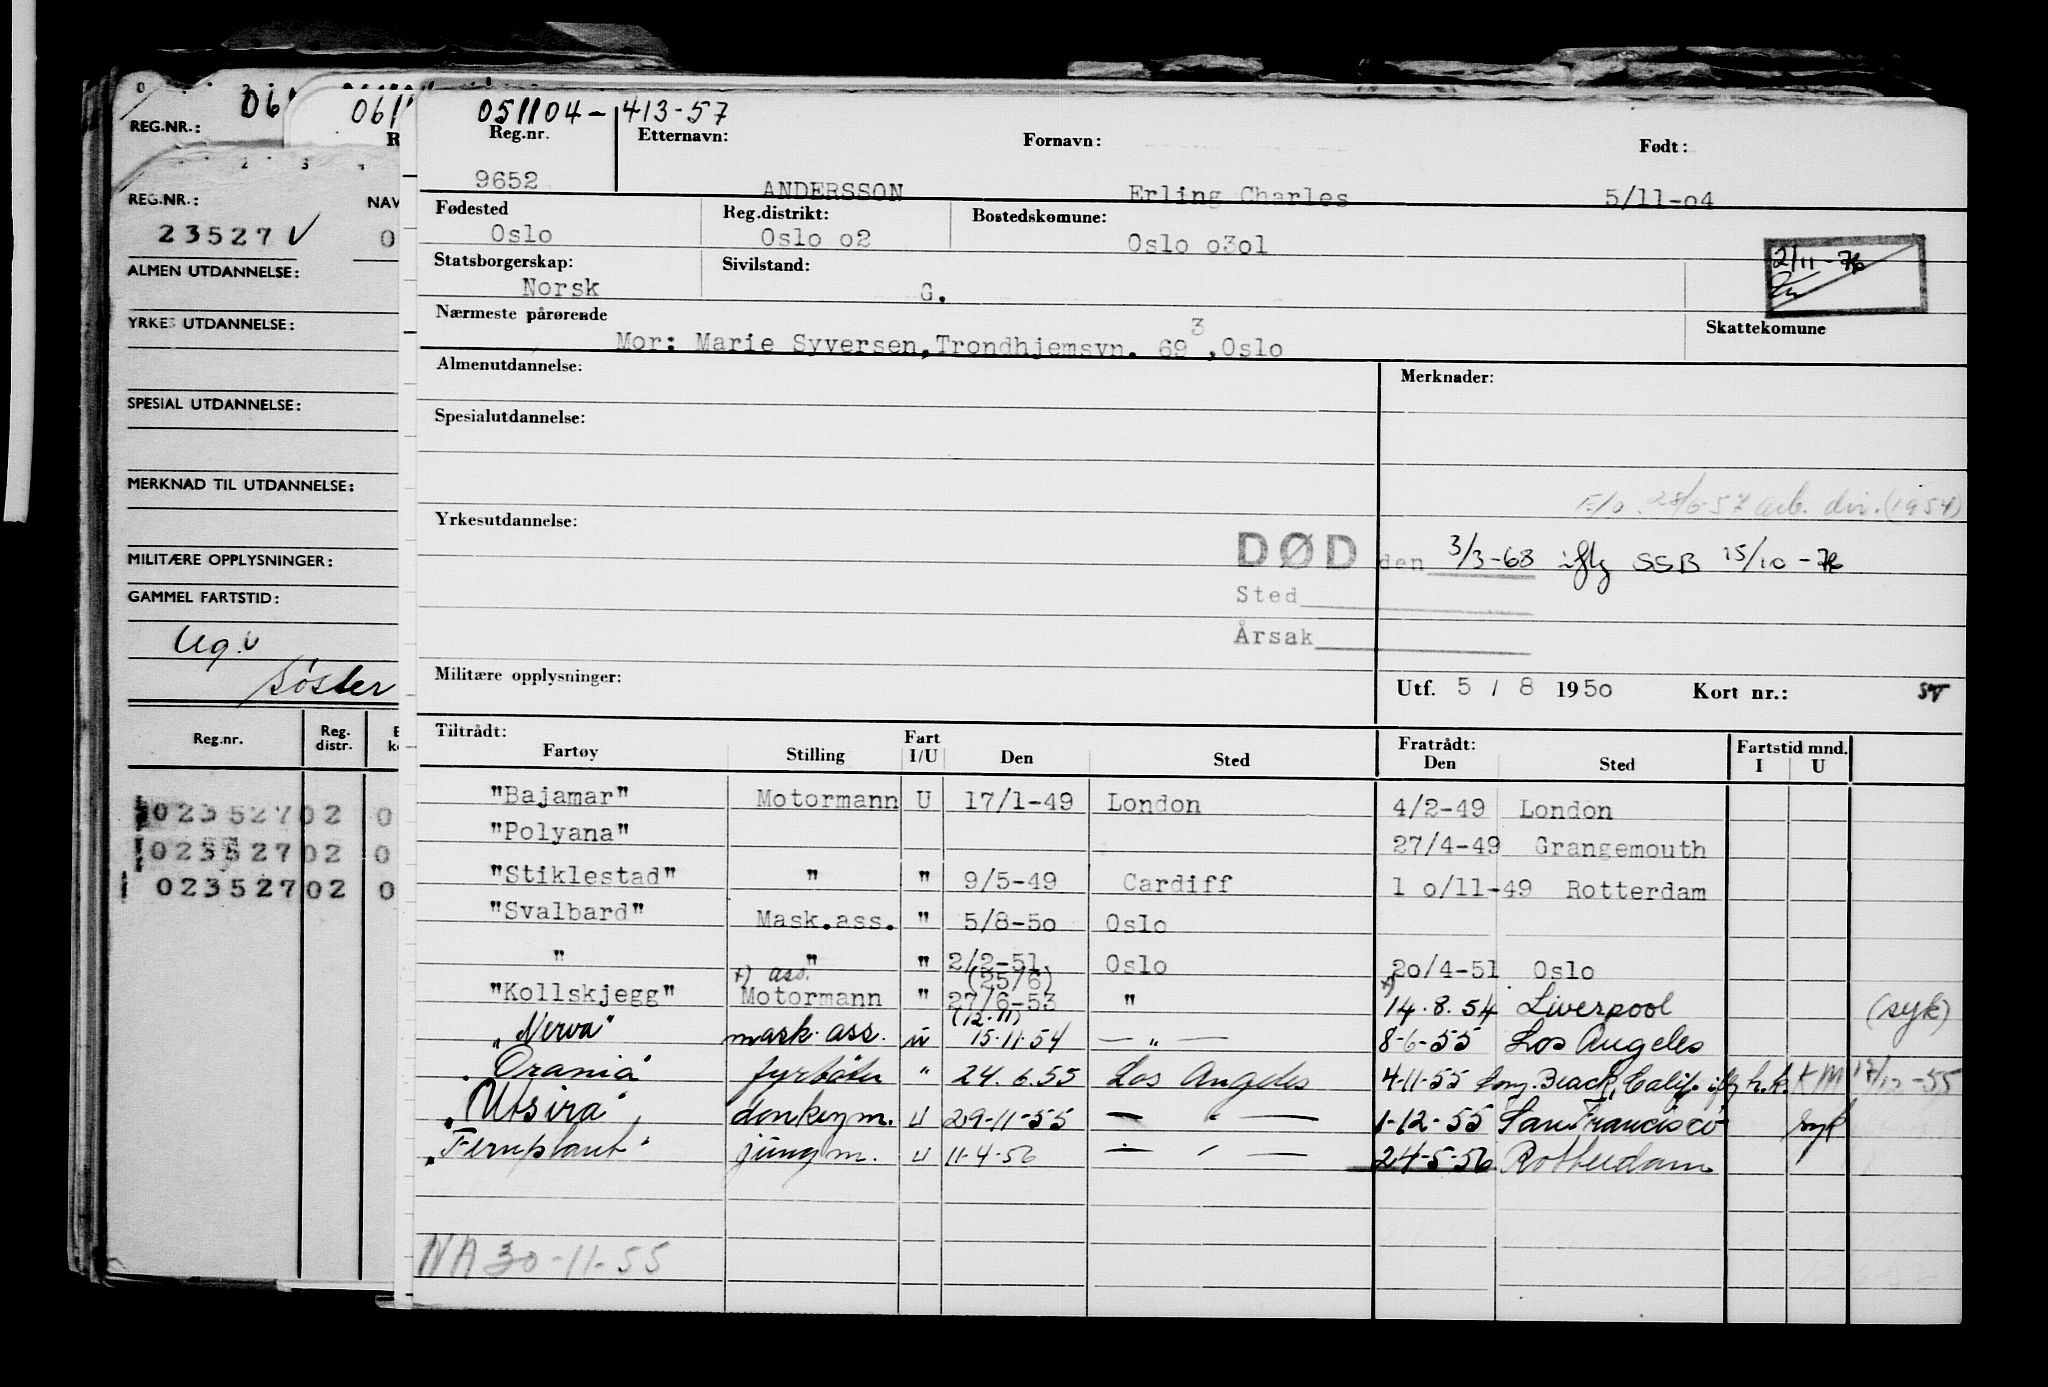 06
0611
051104-413-57
REG.NR.:
Reg.nr. Etternavn: Fornavn: Født:
9652 ANDERSSON Erling Charles 5/11-o4
REG.NR.: NAV
23527 V 0
Fødested Reg.distrikt: Bostedskomune:
Oslo Oslo o2 Oslo o3ol
2/11-76
ALMEN UTDANNELSE:
Statsborgerskap: Sivilstand:
Norsk G.
Nærmeste pårørende Skattekomune
Mor: Marie Syversen,Trondhjemsvn. 69 3 ,Oslo
YRKES UTDANNELSE:
Almenutdannelse: Merknader:
SPESIAL UTDANNELSE:
Spesialutdannelse:
MERKNAD TIL UTDANNELSE:
28/6-57 arb. div. (1954)
Yrkesutdannelse:
DØD den 3/3-68 iflg SSB 15/10-76
MILITÆRE OPPLYSNINGER:
Sted
GAMMEL FARTSTID:
Årsak
Ug. v
søster
Militære opplysninger: Utf. 5 / 8 1950 Kort nr.:
Reg.nr. Reg. distr.
Tiltrådt: Fratrådt:
Fartøy Stilling Fart I/U Den Sted Den Sted Fartstid mnd. I U
"Bajamar" Motormann U 17/1-49 London 4/2-49 London
"Polyana" 27/4-49 Grangemouth
"Stiklestad" " " 9/5-49 Cardiff 1 o/11-49 Rotterdam
"Svalbard" Mask.ass. " 5/8-5o Oslo
" " " 2/2-51 Oslo 2o/4-51 Oslo
+) ass. (25/6)
"Kollskjegg" Motormann " 27/6-53 " +) 14.8.54 Liverpool (syk)
(12.11)
"Nerva" mask.ass. u 15.11.54 — " — 8-6-55 Los Angeles
"Orania" fyrbøter " 24.6.55 Los Angeles 4-11-55 Long Beach, Calif. iflg h.k. KM 17/12-55
"Utsira" donkeym. u 29-11-55 — " — 1-12-55 San Francisco syk
"Fernplant" jungm. u 11-4-56 — " — 24-5-56 Rotterdam
02352702 0
02352702 0
02352702 0
NA 30-11-55